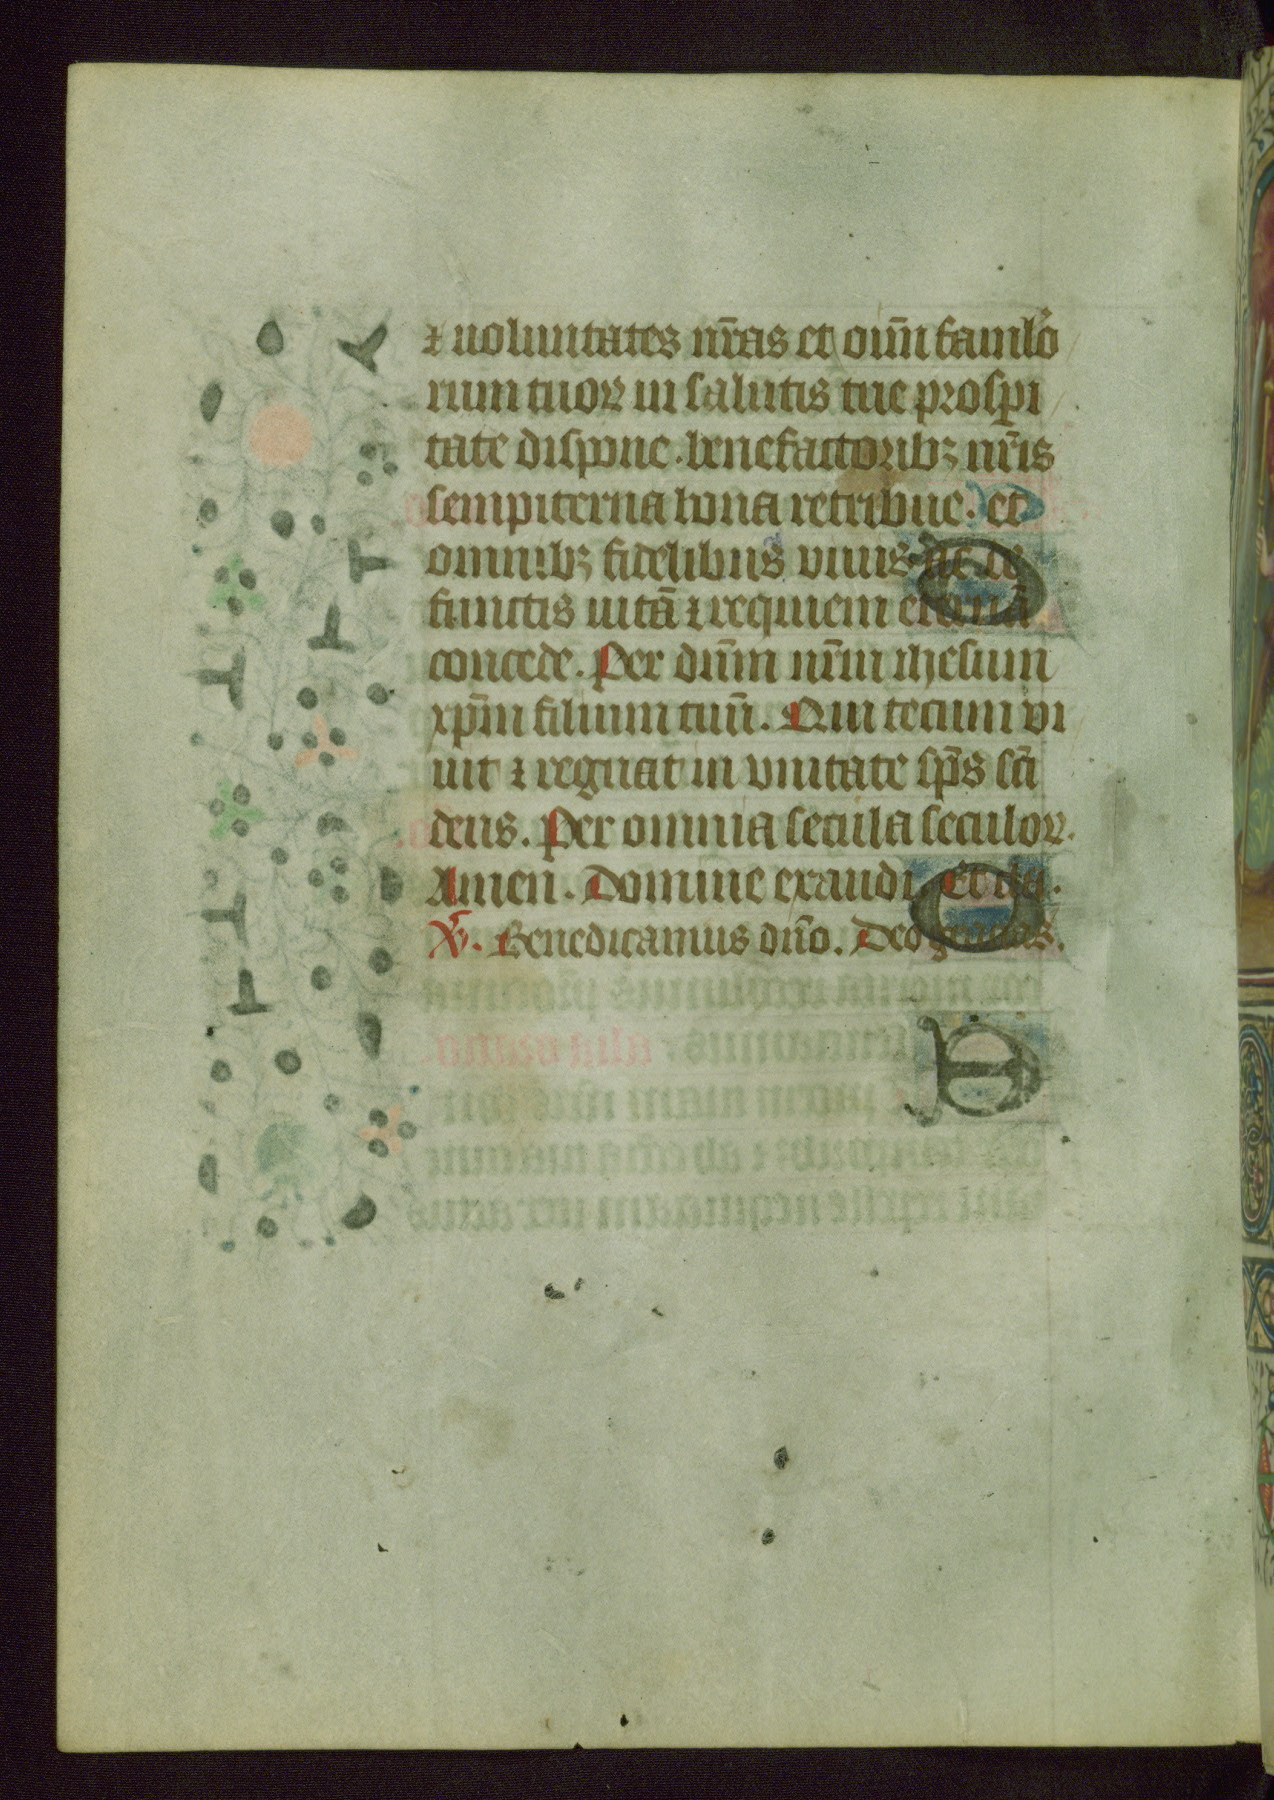 ⁊ uoluntates nr̄as et om̄i famulo
rum tuoꝝ in salutis tue prospi
tate dispone. benefactoribꝫ nr̄is
sempiterna bona retribue. et
omnibꝫ fidelibus viuis ac de
functis uitā ⁊ requiem eternā
concede. Per dn̄m nr̄m ihesum
xp̄m filium tuū. Qui tecum vi
uit ⁊ regnat in vnitate sp̄s sc̄i
deus. Per omnia secula seculoꝝ.
Amen. Domine exaudi. Et
℣. Benedicamus dn̄o. Deo gracias.